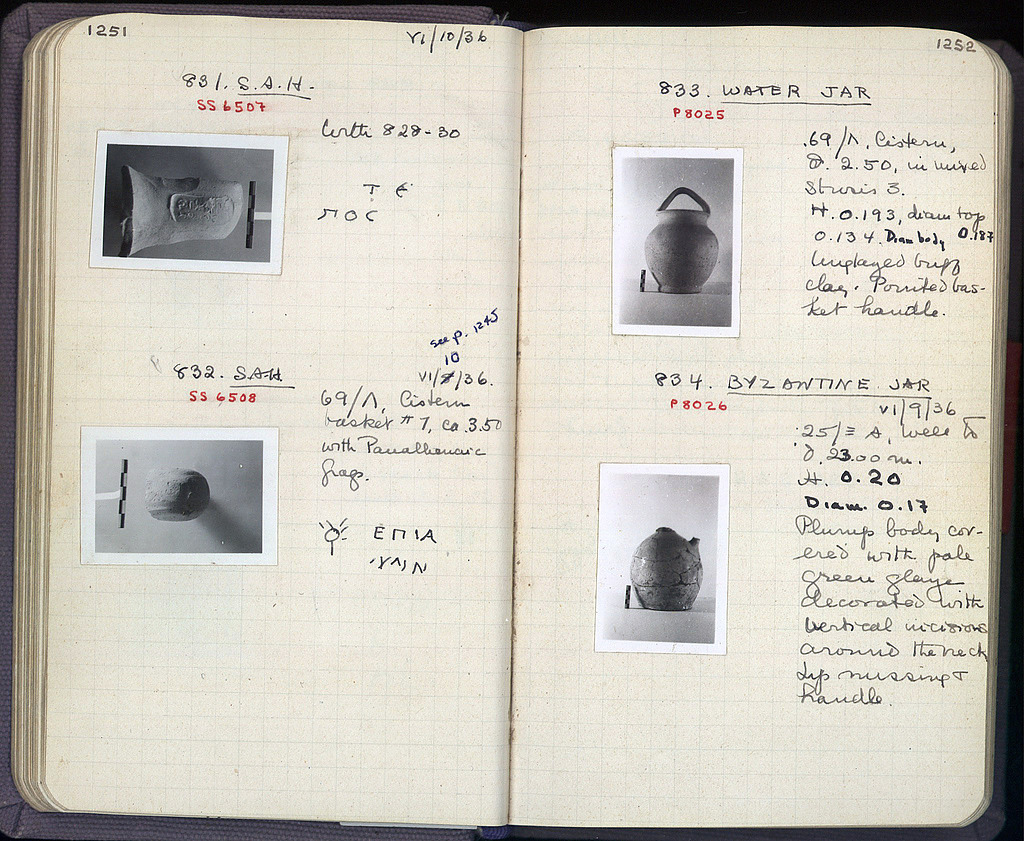 1251
VI/10/36
831. S.A.H.
SS 6507
With 828-30
Τ Є
ΠΟC
see p. 1245
10
832. SAH
VI/8/36.
SS 6508
69/Λ, Cistern
basket #7, ca 3.50
with Panathenaic
frags.
ΕΠΙΑ
1252
833. WATER JAR
P 8025
.69/Λ, Cistern,
d. 2.50, in mixed
Stosis 3.
H. 0.193, diam top
0.134. Diam body 0.187
Unglazed buff
clay. Pointed bas-
ket handle.
834. BYZANTINE JAR
P 8026
VI/9/36
25/Ξ A, well to
d. 23.00 m.
H. 0.20
Diam. 0.17
Plump body cov-
ered with pale
green glaze
decorated with
vertical incisions
around the neck
Lip missing +
handle.